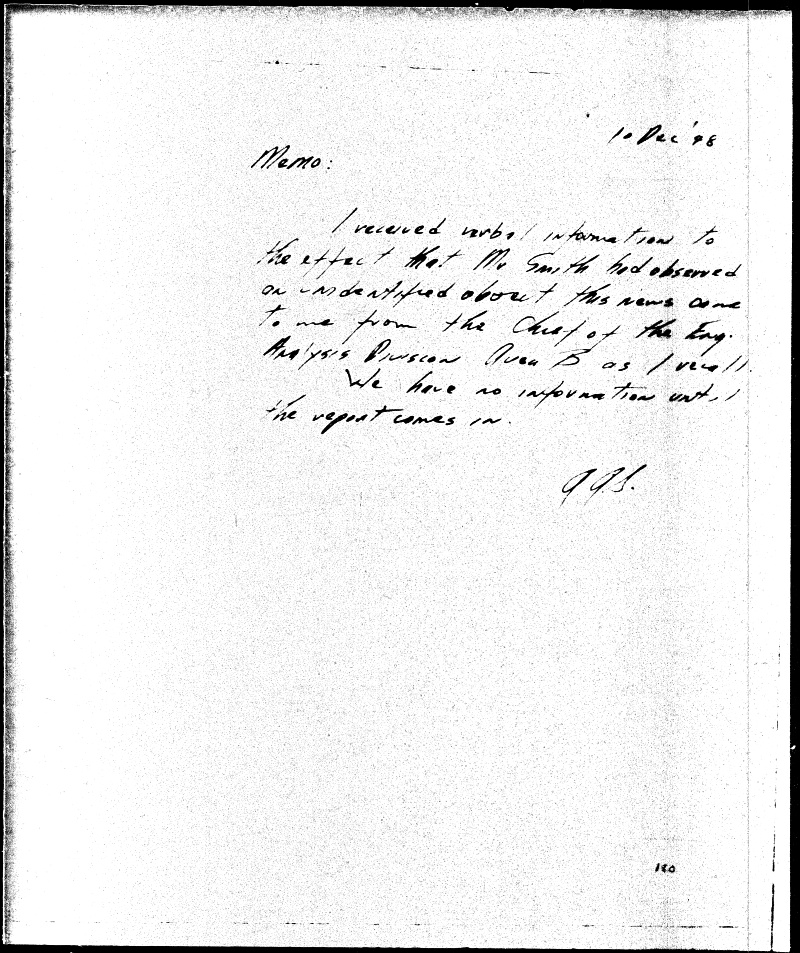 10 Dec '48
Memo:
I received verbal information to
the effect that Mr Smith had observed
an unidentified object this news came
to me from the Chief of the Eng.
Analysis Division Area B as I recall.
We have no information until
the report comes in.
180